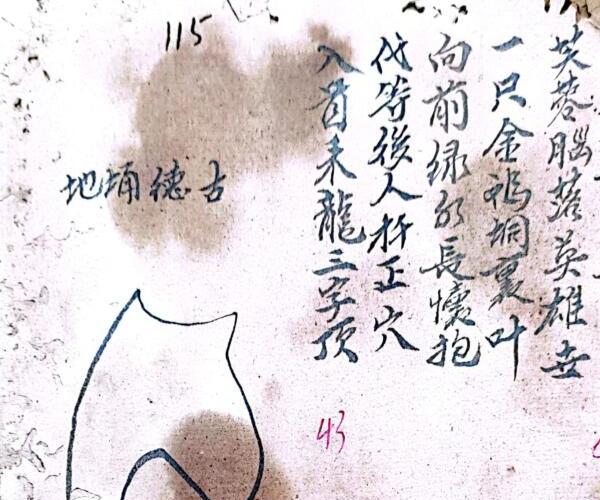 芙蓉腦落英雄
一只金垌裏叶
向前绿水長懷抱
代等後人扦正穴
入首来龍三字顶
115
古德埇地
43